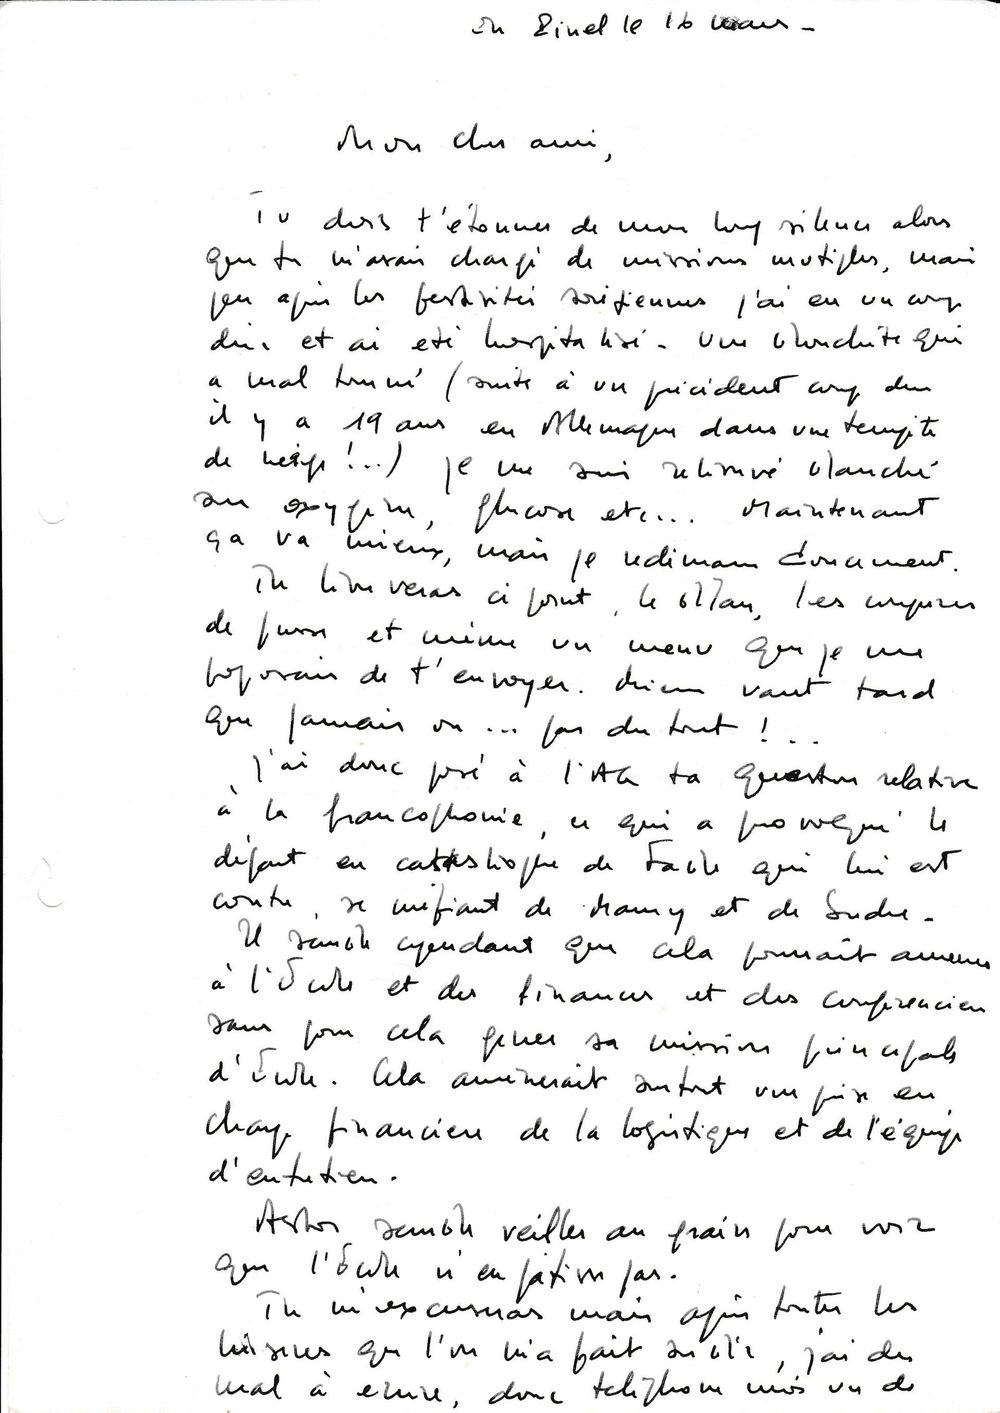 le 16 mars -
Mon cher ami,
Tu dois t'étonner de mon long silence alors
que tu m'avais chargé de missions mutiples, mais
peu après les festivités soréziennes j'ai eu un coup
dur et ai été hospitalisé - Une bronchite qui
a mal tourné (suite à un précédent coup dur
il y a 19 ans en Allemagne dans une tempête
de neige !...) je me suis retrouvé branché
sur oxygène, glucose etc... Maintenant
ça va mieux, mais je redémarre doucement.
Tu trouveras ci joint, le bilan, les coupures
de presse et même un menu que je me
proposais de t'envoyer. Mieux vaut tard
que jamais ou... pas du tout !..
J'ai donc posé à l'AG ta question relative
à la francophonie, ce qui a provoqué le
départ en catastrophe de qui lui est
contre, se méfiant de Nancy et de
Il semble cependant que cela pourrait amener
à l'École et des finances et des conférenciers
sans pour cela gêner sa mission principale
d'École. Cela amènerait surtout une prise en
charge financière de la logistique et de l'équipe
d'entretien.
semble veiller au grain pour voir
que l'École n'en pâtisse pas.
Tu m'excuseras mais après toutes les
misères que l'on m'a fait subir, j'ai du
mal à écrire, donc téléphone moi un de